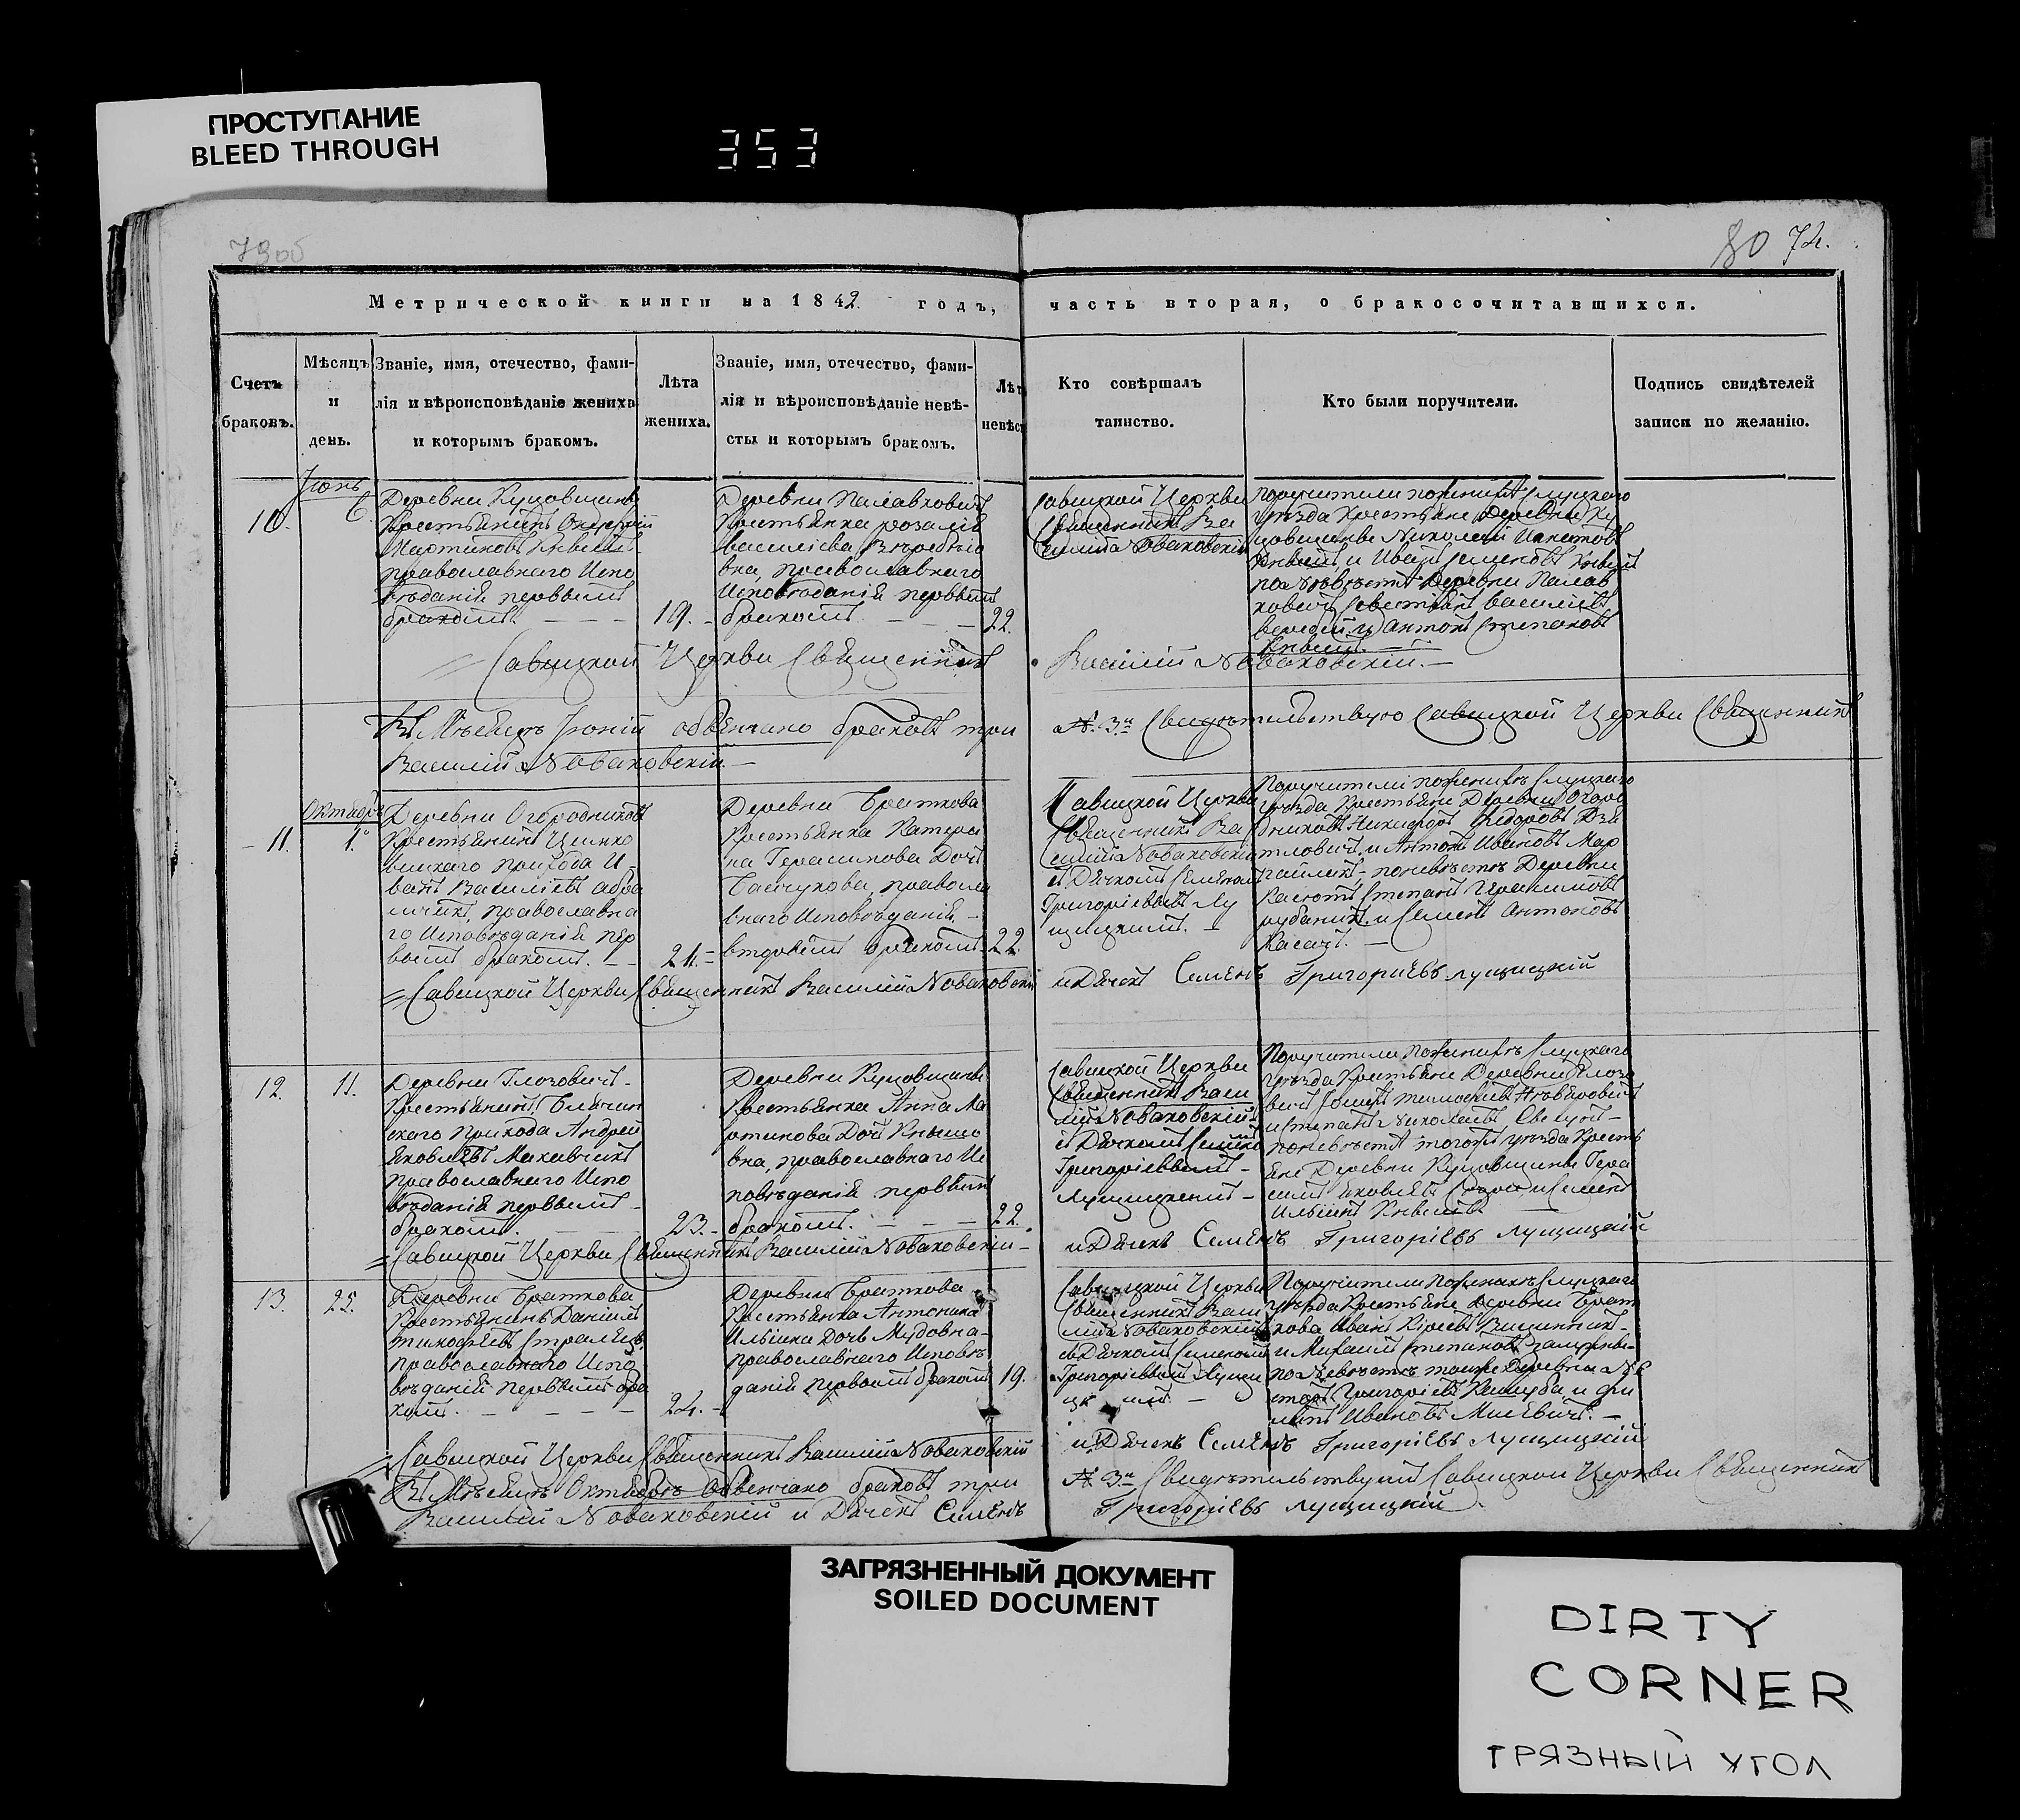 ПРОСТУПАНИЕ
BLEED THROUGH
353
73об
80 74.
Метрической книги на 1842 годъ, часть вторая, о бракосочитавшихся.
Счетъ браковъ.
Мѣсяцъ и день.
Званіе, имя, отечество, фами-
лія и вѣроисповѣданіе жениха
и которымъ бракомъ.
Лѣта жениха.
Званіе, имя, отечество, фами-
лія и вѣроисповѣданіе невѣ-
сты и которымъ бракомъ.
Лѣт невѣст
Кто совѣршалъ таинство.
Кто были поручители.
Подпись свидѣтелей записи по желанію.
Іюнь
10.
6
Деревни Куцовщины
Крестьянинъ
Мартиновъ
православнаго Испо
вѣданія первымъ
бракомъ.
19.
Деревни Палавковичъ
Крестьянка розалія
василіева
вна, православнаго
Исповѣданія первымъ
бракомъ
22.
Савицкой Церкви
Священникъ Ва
силій Новаковскій
Поручители по женихѣ Слуцкаго
уѣзда Крестьяне Деревни Ку
цовщины Николай Игнатовъ
и Иванъ Семеновъ
по невѣстѣ Деревни Палав
ковичъ василіевъ
и антонъ Степановъ
Савицкой Церкви Священникъ Василій Новаковскій.
Въ Мѣсяцѣ Іюній обвенчано браковъ три № 3й Свидѣтельствую Савицкой Церкви Священникъ
Василій Новаковскій
Октябрь
11.
1.
Деревни Огородниковъ
Крестьянинъ
прихода И-
ванъ Василіевъ
православна
го Исповѣданія пер
вымъ бракомъ.
21.
Деревни Браткова
Крестьянка Катери
на Герасимова Дочь
православ
наго Исповѣданія
вторымъ бракомъ
22
Савицкой Церкви
Священникъ Ва
силій Новаковскій
съ Дьячкомъ Семеномъ
Григоріевымъ Лу
щицкимъ.
Поручители по женихѣ Слуцкаго
уѣзда Крестьяне Деревни Огоро
дниковъ Никифоръ Федоровъ
и Антонъ Ивановъ
по невѣстѣ Деревни
Степанъ Герасимовъ
и Семенъ Антоновъ
Касачъ.
Савицкой Церкви Священникъ Василій Новаковскій и Дьячекъ Семенъ Григориевъ лущицкій
12.
11.
Деревни
Крестьянинъ
прихода Андрей
Яковлевъ Макавчикъ
православнаго Испо
вѣданія первымъ
бракомъ.
23.
Деревни Куцовщины
Крестьянка Анна Ма
ртинова Дочь
вна, православнаго Ис
повѣданія первымъ
бракомъ.
22.
Савицкой Церкви
Священникъ Васи
лій Новаковскій
съ Дьячкомъ Семено
Григоріевымъ
Лущицкимъ
Поручители по женихѣ Слуцкаго
уѣзда Крестьяне Деревни
и Степанъ Николаевъ
по невѣстѣ тогожъ уѣзда Кресть
яне Деревни Куцовщины Гера
симъ Яковлевъ и Семенъ
Савицкой Церкви Священникъ Василій Новаковскій и Дьячекъ Семенъ Григоріевъ лущицкій
13.
25.
Деревни Браткова
Крестьянинъ Даніилъ
Стралецъ
православнаго Испо
вѣданія первымъ бра
комъ.
24.
Деревни Браткова
Крестьянка Антонина
Ильина дочь
православнаго Исповѣ
данія первымъ бракомъ
19.
Савицкой Церкви
Священникъ Васи
лій Новаковскій
съ Дьячкомъ Семеномъ
Григоріевымъ Лущи
Поручители по женихѣ Слуцкаго
уѣзда Крестьяне Деревни Брат
кова Иванъ
и Михаилъ Степановъ
по невѣстѣ тоиже Деревни
Григоріевъ и
Ивановъ
Савицкой Церкви Священникъ Василій Новаковскій и Дьячекъ Семенъ Григоріевъ Лущицкій
Въ Мѣсяцѣ Октябрѣ Обвенчано браковъ три № 3й Савицкой Церкви Священникъ
Василій Новаковскій и Дьячекъ Семенъ Григоріевъ лущицкій
ЗАГРЯЗНЕННЫЙ ДОКУМЕНТ
SOILED DOCUMENT
DIRTY
CORNER
ГРЯЗНЫЙ УГОЛ